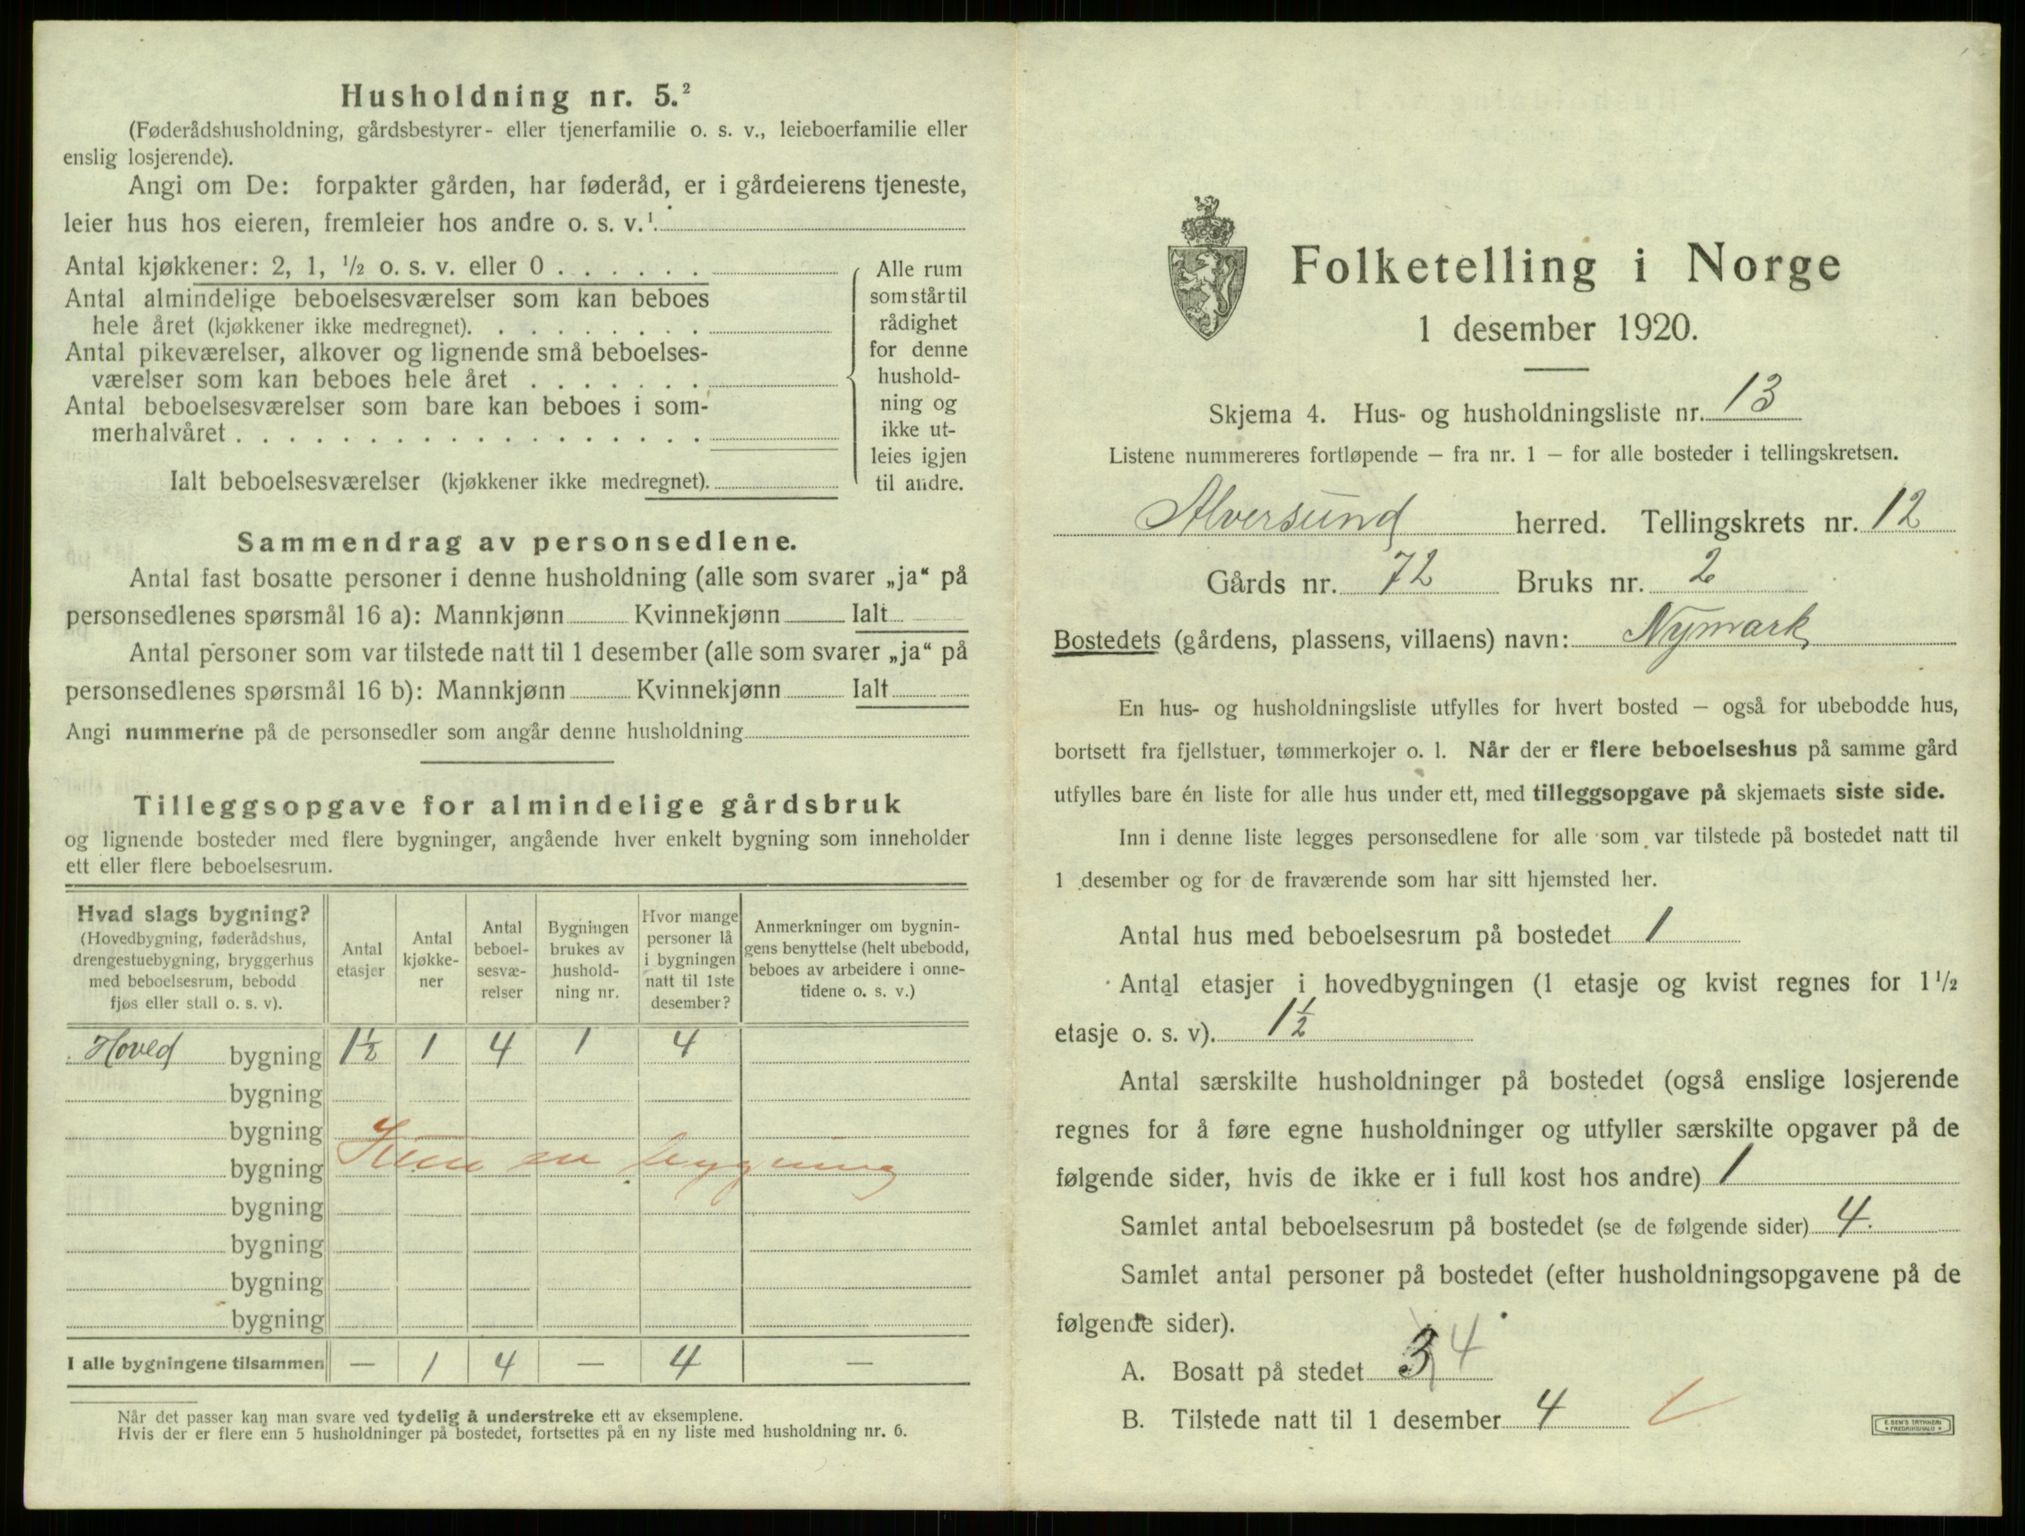 Husholdning nr. 5.²
(Føderådshusholdning, gårdsbestyrer- eller tjenerfamilie o. s. v., leieboerfamilie eller
enslig losjerende).
Angi om De: forpakter gården, har føderåd, er i gårdeierens tjeneste,
leier hus hos eieren, fremleier hos andre o. s. v.¹
Antal kjøkkener: 2, 1, ½ o. s. v. eller 0 . . . . . .
Antal almindelige beboelsesværelser som kan beboes
hele året (kjøkkener ikke medregnet). . . . . . . . .
Antal pikeværelser, alkover og lignende små beboelses-
værelser som kan beboes hele året . . . . . . .
Antal beboelsesværelser som bare kan beboes i som-
merhalvåret . . . . . . . . . . . . . . . . . .
Ialt beboelsesværelser (kjøkkener ikke medregnet).
Alle rum
som står til
rådighet
for denne
hushold-
ning og
ikke ut-
leies igjen
til andre.
Sammendrag av personsedlene.
Antal fast bosatte personer i denne husholdning (alle som svarer „ja“ på
personsedlenes spørsmål 16 a): Mannkjønn Kvinnekjønn Ialt
Antal personer som var tilstede natt til 1 desember (alle som svarer „ja“ på
personsedlenes spørsmål 16 b): Mannkjønn Kvinnekjønn Ialt
Angi nummerne på de personsedler som angår denne husholdning
Tilleggsopgave for almindelige gårdsbruk
og lignende bosteder med flere bygninger, angående hver enkelt bygning som inneholder
ett eller flere beboelsesrum.
Hvad slags bygning?
(Hovedbygning, føderådshus,
drengestuebygning, bryggerhus
med beboelsesrum, bebodd
fjøs eller stall o. s. v).
Antal
etasjer
Antal
kjøkke-
ner
Antal
beboel-
sesvæ-
relser
Bygningen
brukes av
hushold-
ning nr.
Hvor mange
personer lå
i bygningen
natt til 1ste
desember?
Anmerkninger om bygnin-
gens benyttelse (helt ubebodd,
beboes av arbeidere i onne-
tidene o. s. v.)
Hoved bygning 1½ 1 4 1 4
bygning
bygning
Kun en bygning
bygning
bygning
bygning
bygning
bygning
I alle bygningene tilsammen — 1 4 — 4 —
Når det passer kan man svare ved tydelig å understreke ett av eksemplene.
Hvis der er flere enn 5 husholdninger på bostedet, fortsettes på en ny liste med husholdning nr. 6.
Folketelling i Norge
1 desember 1920.
Skjema 4. Hus- og husholdningsliste nr. 13
Listene nummereres fortløpende — fra nr. 1 — for alle bosteder i tellingskretsen.
Alversund herred. Tellingskrets nr. 12
Gårds nr. 72 Bruks nr. 2
Bostedets (gårdens, plassens, villaens) navn: Nymark
En hus- og husholdningsliste utfylles for hvert bosted — også for ubebodde hus,
bortsett fra fjellstuer, tømmerkojer o. l. Når der er flere beboelseshus på samme gård
utfylles bare én liste for alle hus under ett, med tilleggsopgave på skjemaets siste side.
Inn i denne liste legges personsedlene for alle som var tilstede på bostedet natt til
1 desember og for de fraværende som har sitt hjemsted her.
Antal hus med beboelsesrum på bostedet 1
Antal etasjer i hovedbygningen (1 etasje og kvist regnes for 1½
etasje o. s. v). 1½
Antal særskilte husholdninger på bostedet (også enslige losjerende
regnes for å føre egne husholdninger og utfyller særskilte opgaver på de
følgende sider, hvis de ikke er i full kost hos andre) 1
Samlet antal beboelsesrum på bostedet (se de følgende sider) 4.
Samlet antal personer på bostedet (efter husholdningsopgavene på de
følgende sider).
A. Bosatt på stedet 3 4
B. Tilstede natt til 1 desember 4
E. SEM'S TRYKKERI
FREDRIKSHALD